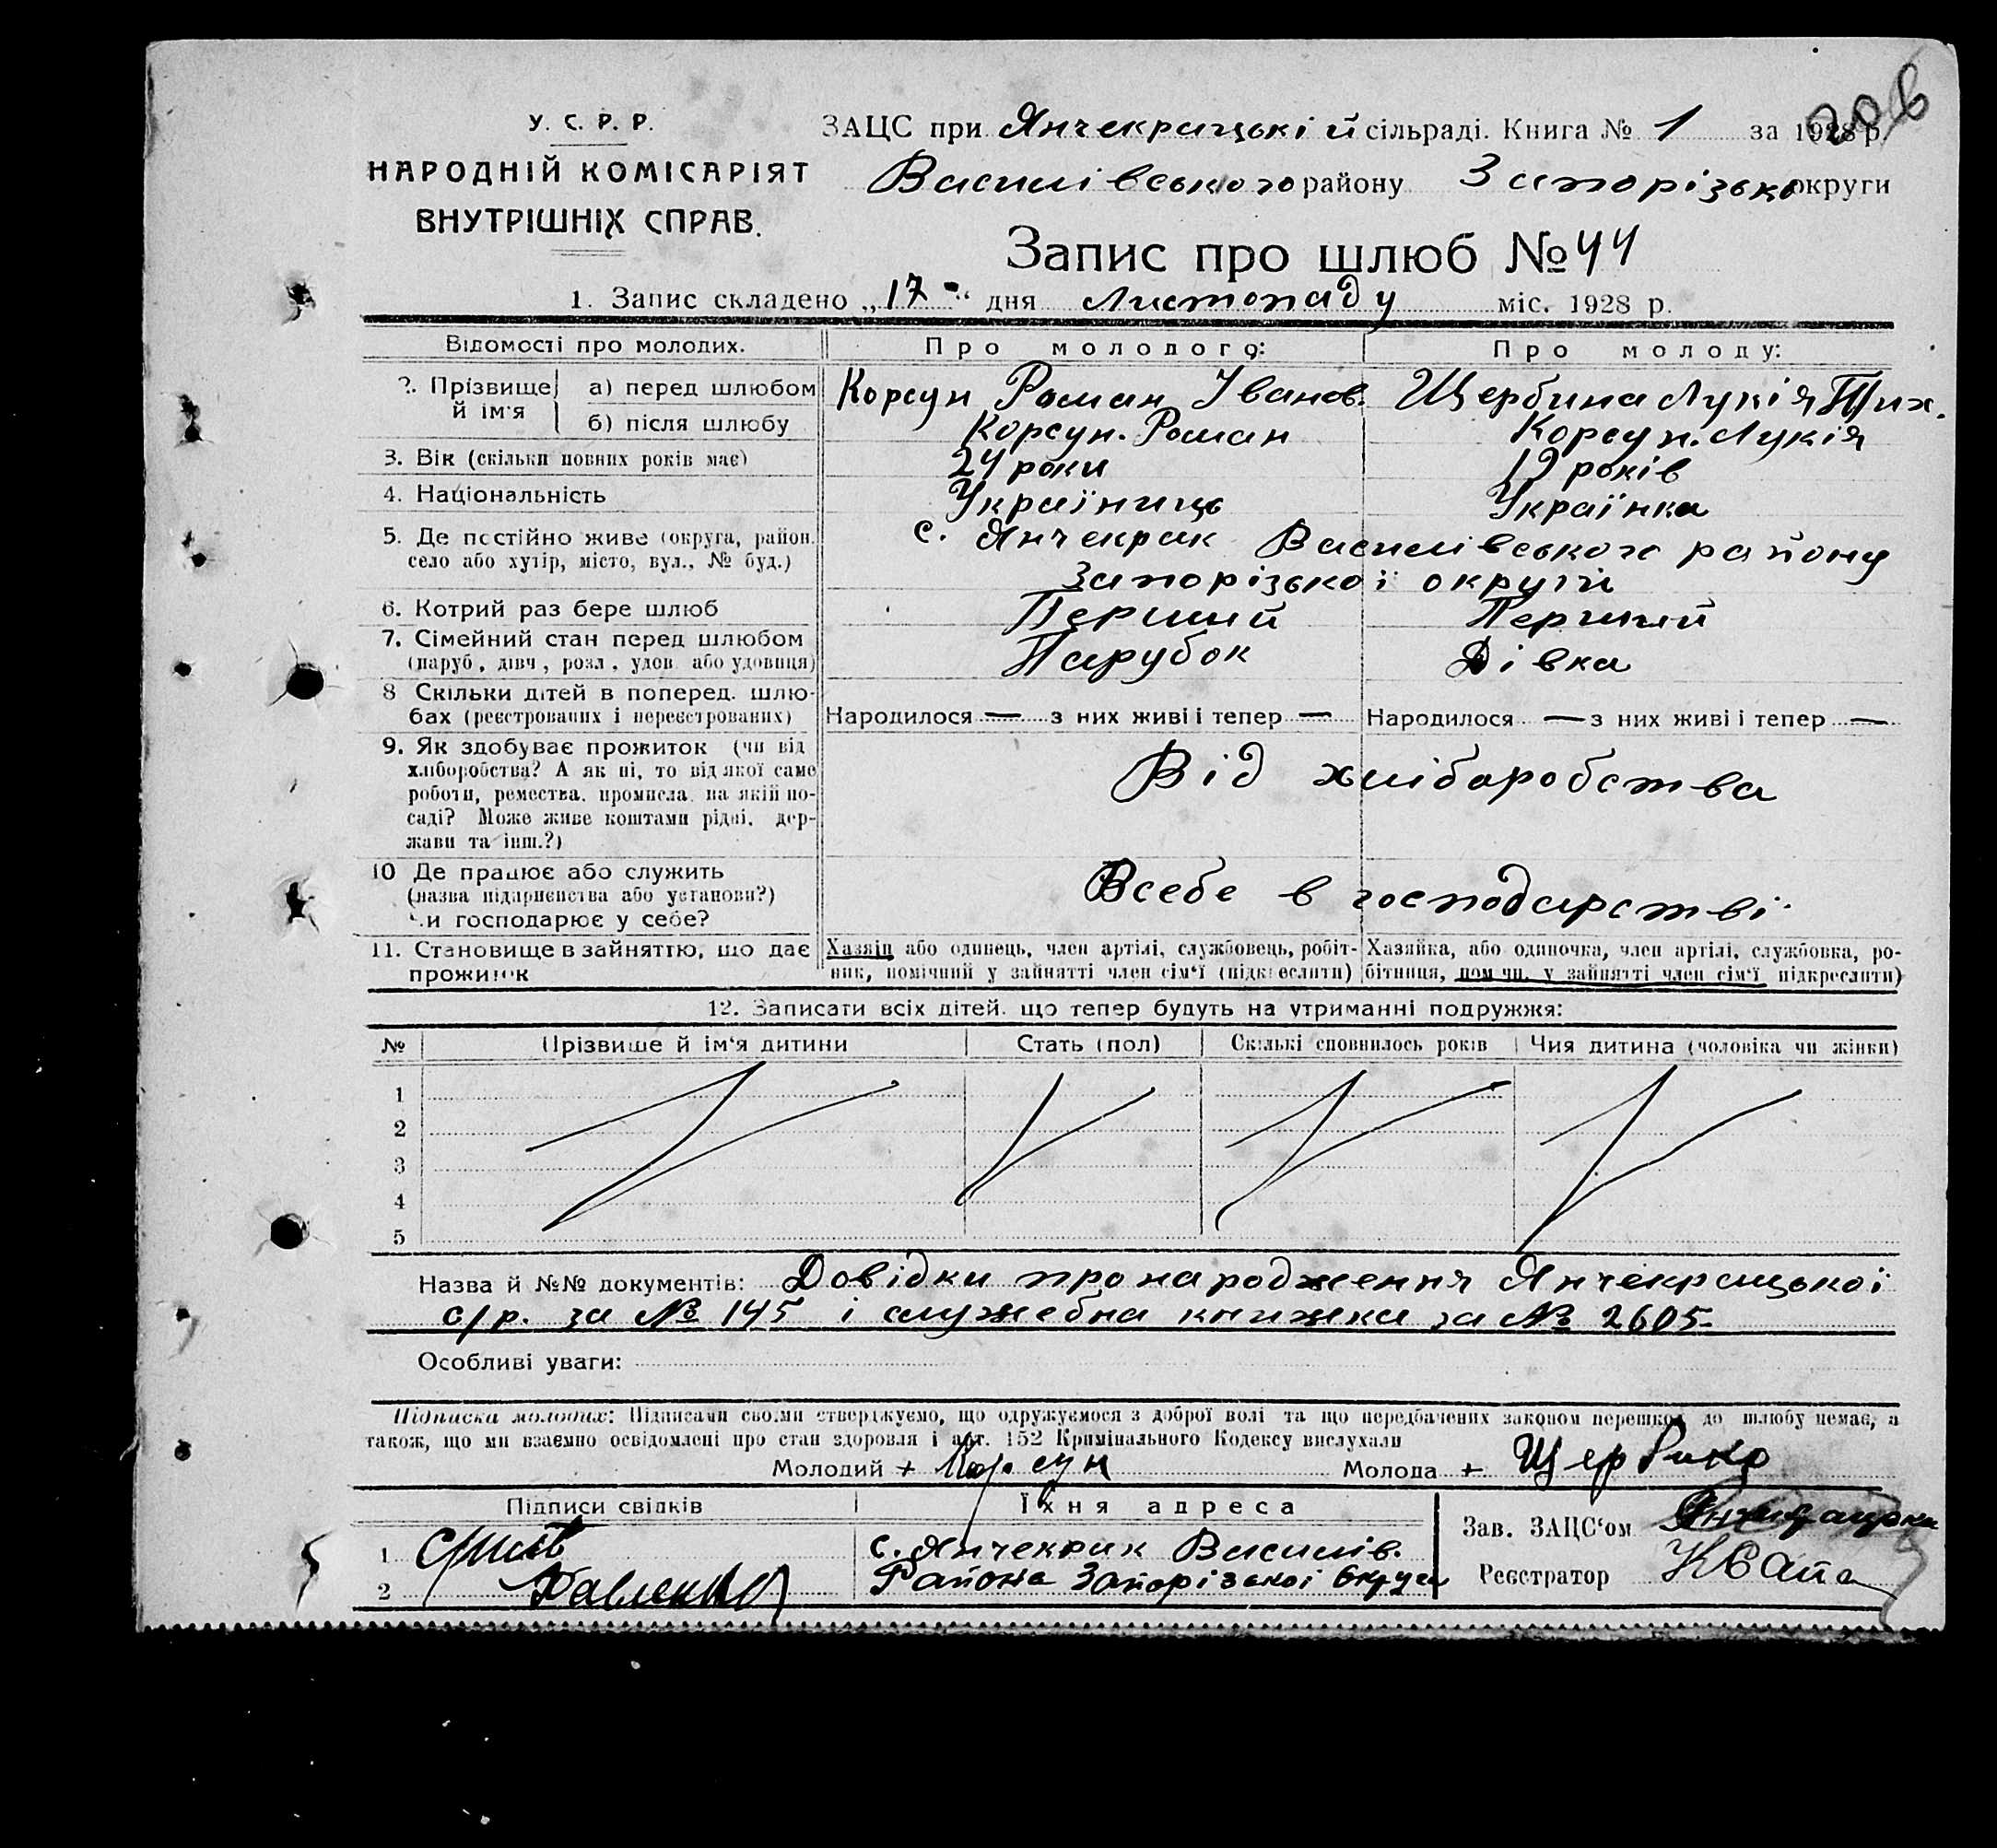 206
У. С. Р. Р.
НАРОДНІЙ КОМІСАРІЯТ
ВНУТРІШНІХ СПРАВ.
ЗАЦС при Янчекрацькій сільраді. Книга № 1 за 1928 р.
Василівського району Запорізько округи
Запис про шлюб № 44
1. Запис складено „17" дня Листопаду міс. 1928 р.
Відомості про молодих. Про молодого: Про молоду:
2. Прізвище й ім'я а) перед шлюбом Корсун Роман Іванов. Щербина Лукія Тих.
б) після шлюбу Корсун. Роман Корсун. Лукія
3. Вік (скільки повних років має) 24 роки 19 років
4. Національність Україниць Українка
5. Де постійно живе (округа, район, с. Янчекрак Василівського району
село або хутір, місто, вул., № буд.) Запорізької округи
6. Котрий раз бере шлюб Перший Перший
7. Сімейний стан перед шлюбом Парубок Дівка
(паруб., дівч., розл., удов. або удовиця)
8 Скільки дітей в поперед. шлю-
бах (реєстрованих і нереєстрованих) Народилося — з них живі і тепер — Народилося — з них живі і тепер —
9. Як здобуває прожиток (чи від Від хліборобства
хліборобства? А як ні, то від якої саме
роботи, ремества, промисла, на якій по-
саді? Може живе коштами рідні, дер-
жави та інш.?)
10 Де працює або служить Всебе в господарстві
(назва підприємства або установи?)
Чи господарює у себе?
11. Становище в зайняттю, що дає Хазяїн або одинець, член артілі, службовець, робіт- Хазяйка, або одиночка, член артілі, службовка, ро-
прожиток ник, помічний у зайнятті член сім'ї (підкреслити) бітниця, помічн. у зайнятті член сім'ї підкреслити)
12. Записати всіх дітей, що тепер будуть на утриманні подружжя:
№ Прізвище й ім'я дитини Стать (пол) Скількі сповнилось років Чия дитина (чоловіка чи жінки)
1
2
3
4
5
Назва й №№ документів: Довідки про народження Янчекрацької
с/р. за № 145 і служебна книжка за № 2605-
Особливі уваги:
Підписка молодих: Підписами своїми стверджуємо, що одружуємося з доброї волі та що передбачених законом перешкод до шлюбу немає, а
також, що ми взаємно освідомлені про стан здоровля і арт. 152 Кримінального Кодексу вислухали
Молодий + Корсун Молода + Щербина
Підписи свідків Їхня адреса Зав. ЗАЦС'ом
1 с. Янчекрак Василів.
2 Павленко Района Запорізької Округи Реєстратор